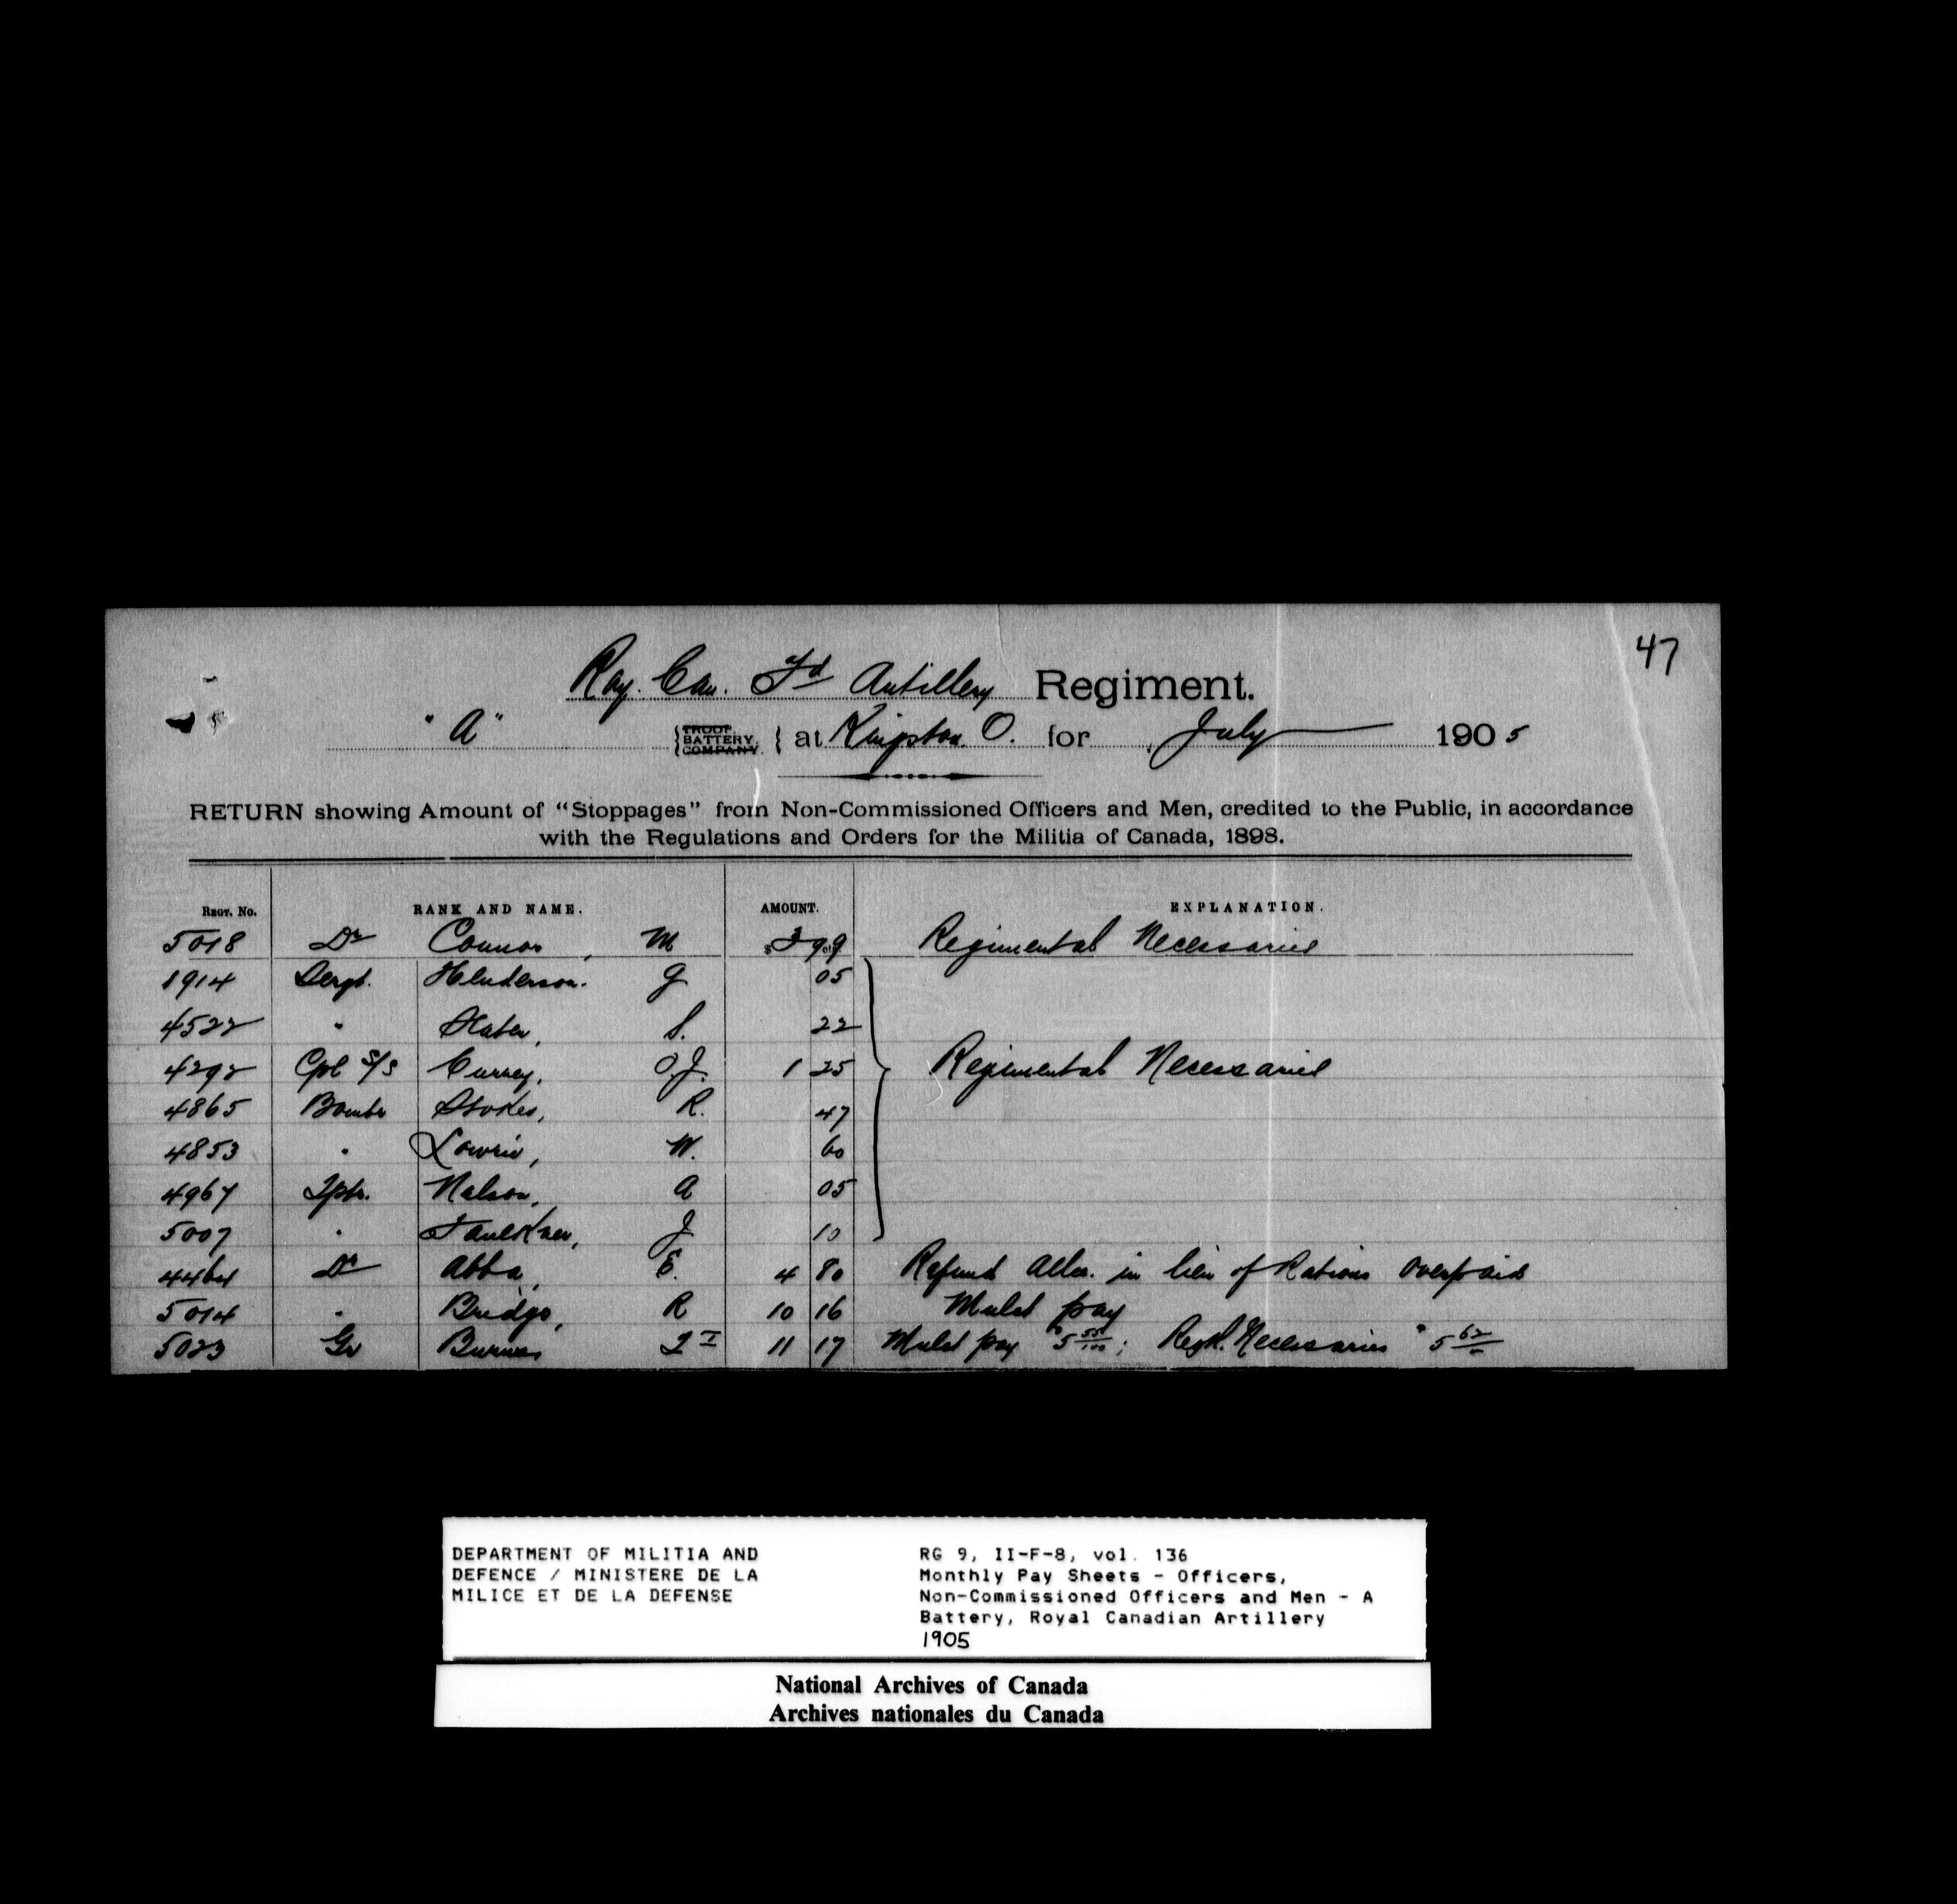 47
Roy. Can. Fd Artillery Regiment.
"A" {TROOP BATTERY. COMPANY.} at Kingston O. for July 1905
RETURN showing Amount of "Stoppages" from Non-Commissioned Officers and Men, credited to the Public, in accordance
with the Regulations and Orders for the Militia of Canada, 1898.
REGT. No. RANK AND NAME. AMOUNT. EXPLANATION.
5018 Dr Connor, M $ 3 99 Regimental Necessaries
1914 Sergt. Henderson. G 05
4522 " Slater, S. 22
4292 Cpl S/S Currey, O.J. 1 25 Regimental Necessaries
4865 Bombr Stokes, R. 47
4853 " Lowrie, W. 60
4967 Tptr. Nelson, A 05
5007 " Faulkner, J 10
4464 Dr Abba, E. 4 80 Refund Allce. in lieu of Rations Overpaid
5014 " Bridge, R 10 16 Mulct pay
5023 Gr Burnes 11 17 Mulct pay $5 55/100; Regtl. Necessaries $5 62/
DEPARTMENT OF MILITIA AND
DEFENCE / MINISTERE DE LA
MILICE ET DE LA DEFENSE
RG 9, II-F-8, vol. 136
Monthly Pay Sheets - Officers,
Non-Commissioned Officers and Men - A
Battery, Royal Canadian Artillery
1905
National Archives of Canada
Archives nationales du Canada